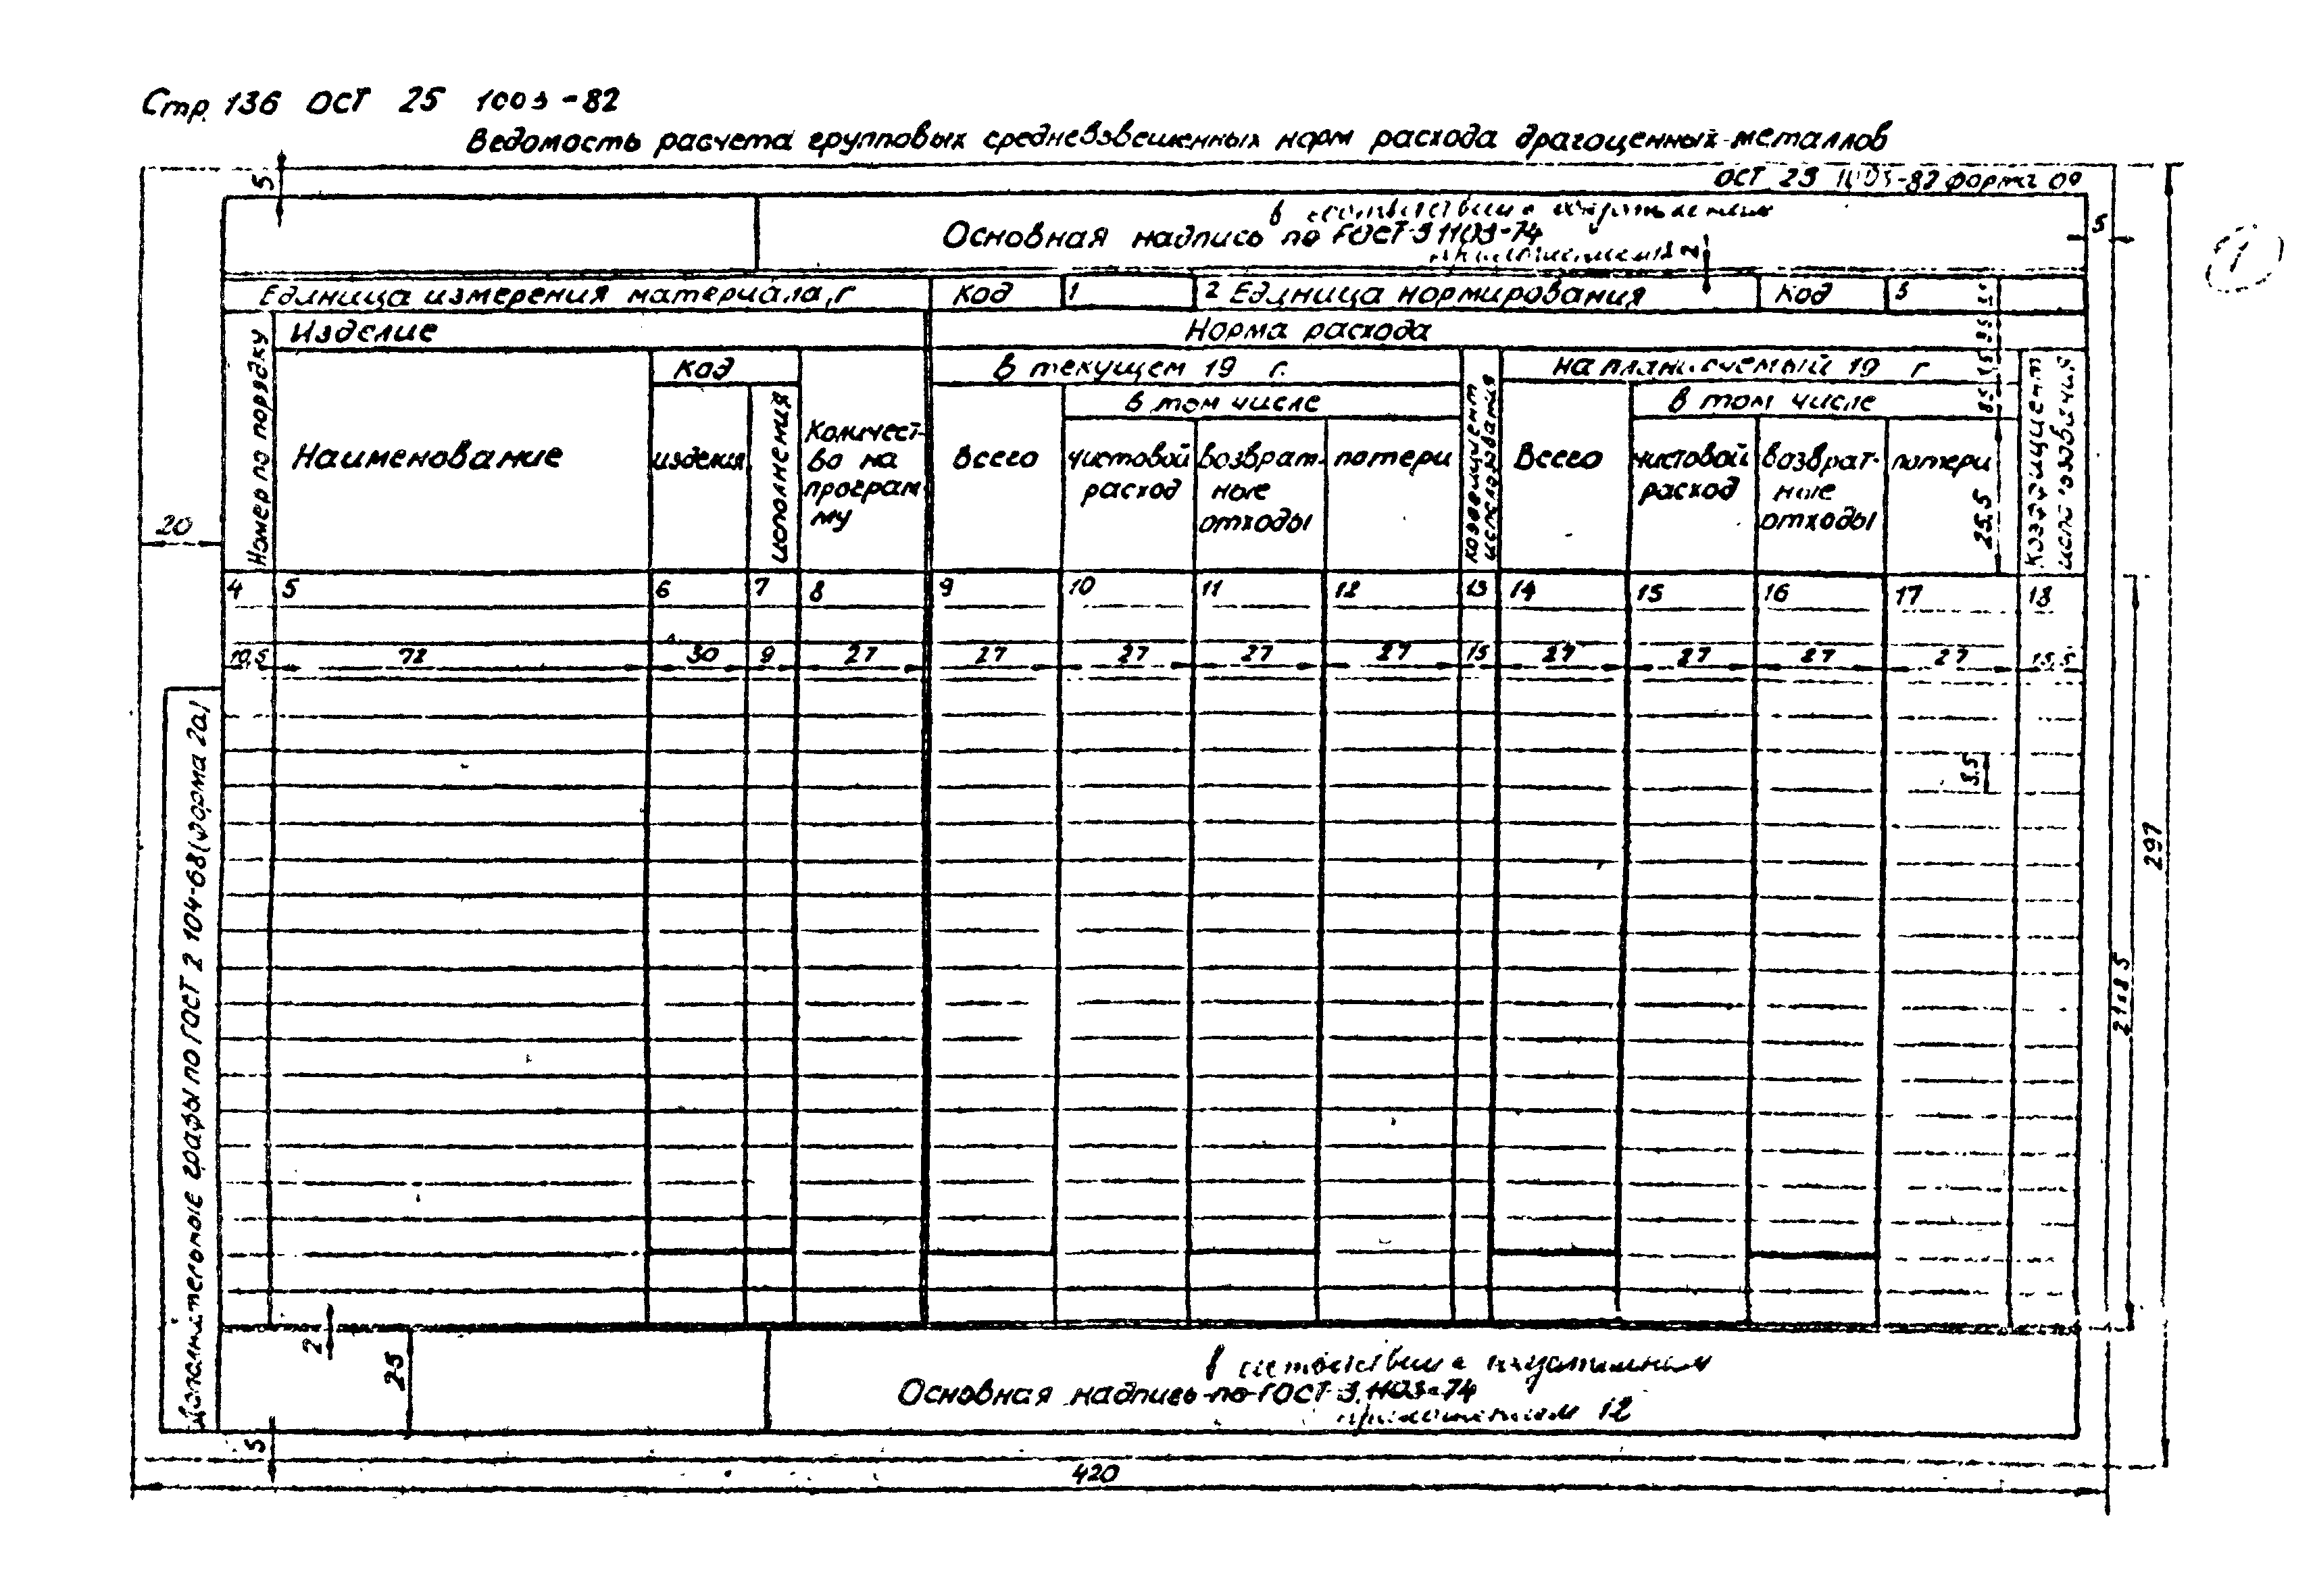 Стр. 136 ОСТ 25 1003-82
Ведомость расчета групповых средневзвешенных норм расхода драгоценных металлов
ОСТ 25 1003-82 форма 09
5
в соответствии с
Основная надпись по ГОСТ 3 1103-74
5
1
Единица измерения материала, г Код 1 2 Единица нормирования Код 3
Номер по порядку
Изделие
Норма расхода
Код
в текущем 19 г.
на планируемый 19 г
в том числе
в том числе
Наименование
изделия
исполнения
Количест-
во на
програм
му
Всего
чистовой
расход
возврат-
ные
отходы
потери
коэффициент
использования
Всего
чистовой
расход
возврат-
ные
отходы
потери
25,5
коэффициент
использования
20
4 5 6 7 8 9 10 11 12 13 14 15 16 17 18
10,5 72 30 9 27 27 27 27 27 15 27 27 27 27 15,5
8,5
297
21×8 5
Дополнительные графы по ГОСТ 2 104-68 (форма 2а)
2
25
в соответствии с
Основная надпись по ГОСТ 3.1103-74
приложением 12
5
420